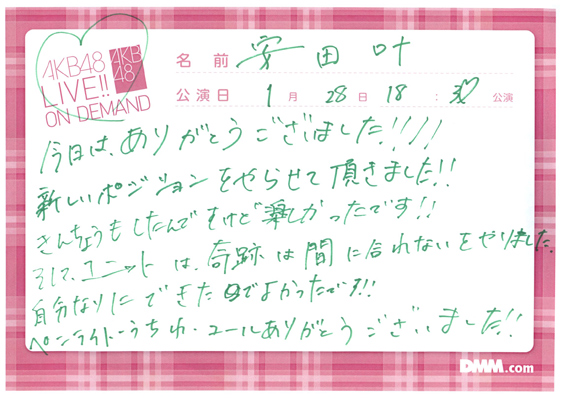 AKB48
LIVE!!
ON DEMAND
AKB
48
名前 安田叶
公演日 1月28日18: 公演
今日は、ありがとうございました!!!!
新しいポジションをやらせて頂きました!!
きんちょうもしたんですけど楽しかったです!!
そして、ユニットは、奇跡は間に合わないをやりました。
自分なりにできたのでよかったです!!
ペンライト・うちわ・コールありがとうございました!!
DMM.com